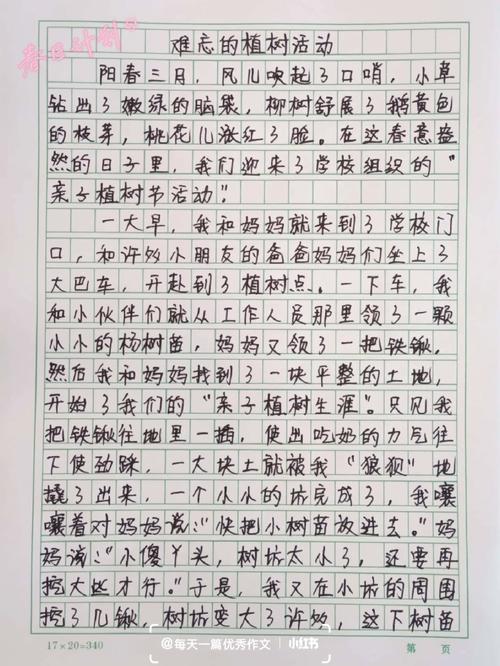 春日计划
难忘的植树活动
阳春三月，风儿吹起了口哨，小草
钻出了嫩绿的脑袋，柳树舒展了鹅黄色
的枝芽，桃花儿涨红了脸。在这春意盎
然的日子里，我们迎来了学校组织的“
亲子植树节活动”。
一大早，我和妈妈就来到了学校门
口，和许多小朋友的爸爸妈妈们坐上了
大巴车，开赴到了植树点。一下车，我
和小伙伴们就从工作人员那里领了一颗
小小的杨树苗，妈妈又领了一把铁锹，
然后我和妈妈找到了一块平整的土地，
开始了我们的“亲子植树生涯”。只见我
把铁锹往地里一插，使出吃奶的力气往
下使劲踩，一大块土就被我“狼狈”地
撬了出来，一个小小的坑完成了，我嚷
嚷着对妈妈说：“快把小树苗放进去。”妈
妈说：“小傻丫头，树坑太小了，还要再
挖大些才行。”于是，我又在小坑的周围
挖了几锹，树坑变大了许多，这下树苗
17×20=340
@每天一篇优秀作文 小红书
第 页